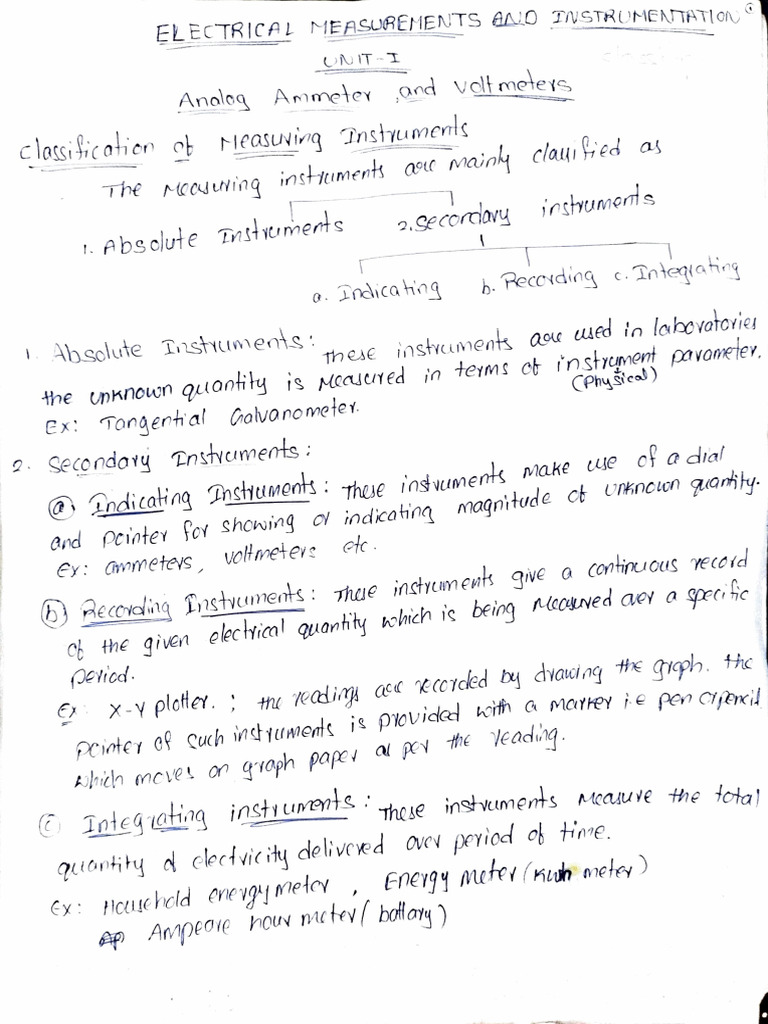 ELECTRICAL MEASUREMENTS AND INSTRUMENTATION ①
UNIT-I
Analog Ammeter and Voltmeters
Classification of Measuring Instruments
The measuring instruments are mainly classified as
1. Absolute Instruments 2. Secondary instruments
a. Indicating b. Recording c. Integrating
1. Absolute Instruments: These instruments are used in laboratories
the unknown quantity is measured in terms of instrument parameter.
(Physical)
Ex: Tangential Galvanometer.
2. Secondary Instruments:
(a) Indicating Instruments: These instruments make use of a dial
and pointer for showing or indicating magnitude of unknown quantity.
Ex: ammeters, voltmeters etc.
(b) Recording Instruments: These instruments give a continuous record
of the given electrical quantity which is being measured over a specific
period.
Ex: X-Y plotter. ; the readings are recorded by drawing the graph. the
pointer of such instruments is provided with a marker i.e pen or pencil
which moves on graph paper as per the reading.
(c) Integrating instruments: These instruments measure the total
quantity of electricity delivered over period of time.
Ex: Household energy meter, Energy meter (kwh meter)
Ampeare hour meter (battary)